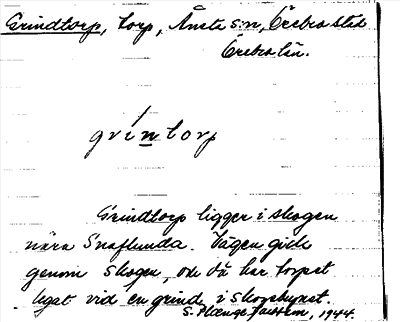 Grindtorp, torp, Ånsta s:n, Örebro stad
Örebro län.
grintorp
Grindtorp ligger i skogen
nära Snaflunda. Vägen gick
genom skogen, och då har torpet
legat vid en grind i skogsbrynet.
S. Plænge 1944.